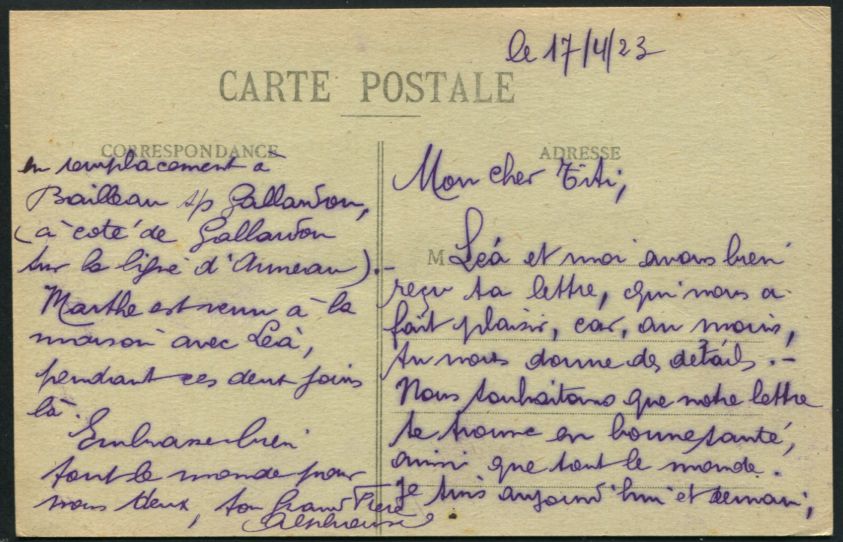 le 17/4/23
CARTE POSTALE
CORRESPONDANCE
ADRESSE
Mon cher Titi,
M Léa et moi avons bien
reçu ta lettre, qui nous a
fait plaisir, car, au moins,
tu nous donne des détails. -
Nous souhaitons que notre lettre
te trouve en bonne santé,
ainsi que tout le monde.
Je suis aujourd'hui et demain,
en remplacement à
Bailleau s/s Gallardon,
(à coté de Gallardon
sur la ligne d'Auneau). -
Marthe est venu à la
maison avec Léa,
pendant ces deux jours
là.
Embrasse bien
tout le monde pour
nous deux, ton Grand Frère
Alphonse